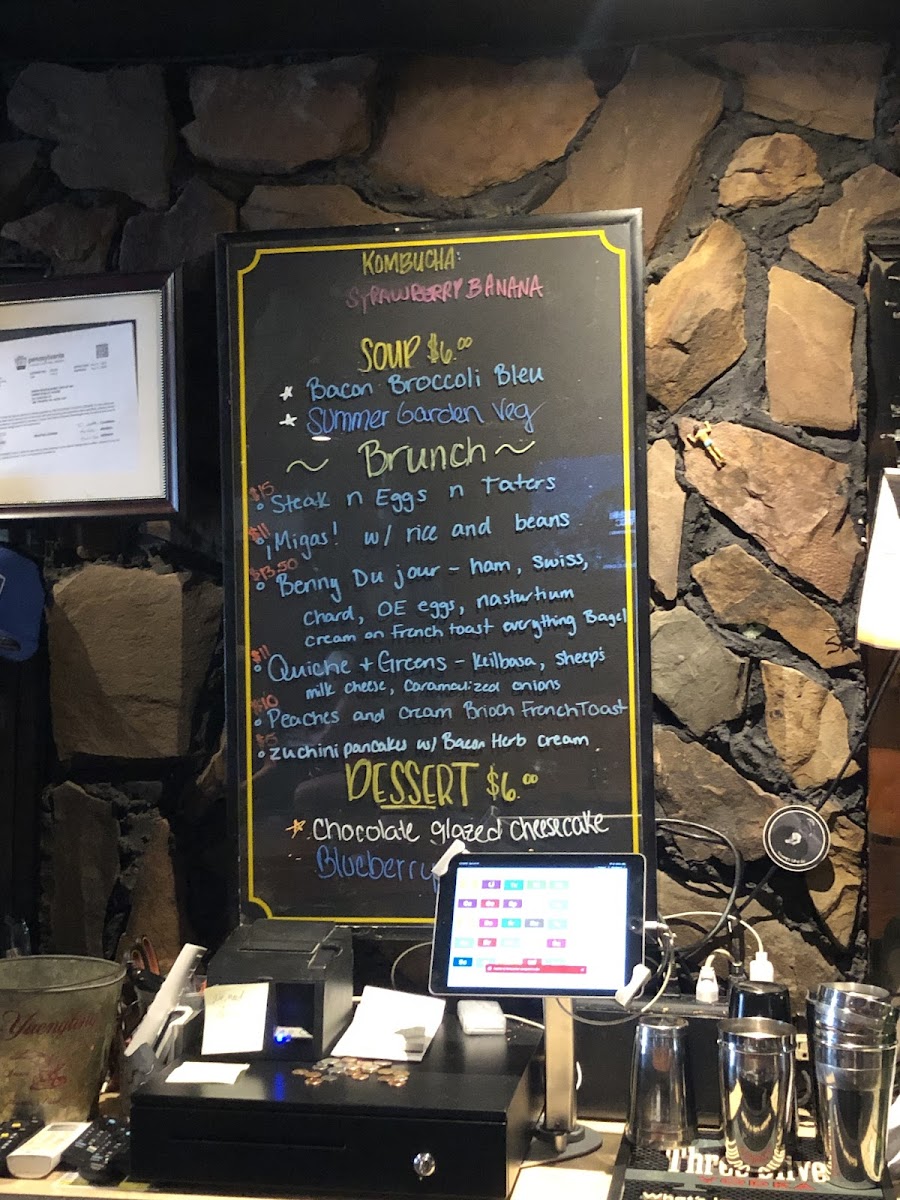 KOMBUCHA:
STRAWBERRY BANANA
SOUP $6.00
Bacon Broccoli Bleu
Summer Garden Veg
~ Brunch ~
$15 Steak n Eggs n Taters
$11 ¡Migas! w/ rice and beans
$13.50 Benny Du jour - ham, swiss,
chard, OE eggs, nasturtium
cream on French toast everything Bagel
$11 Quiche + Greens - Keilbasa, sheep's
milk cheese, Caramalized onions
$10 Peaches and Cream Brioch French Toast
$5 Zuchini pancakes w/ Bacon Herb cream
DESSERT $6.00
Chocolate glazed cheesecake
Blueberry
Yuengling
Three Olives
VODKA